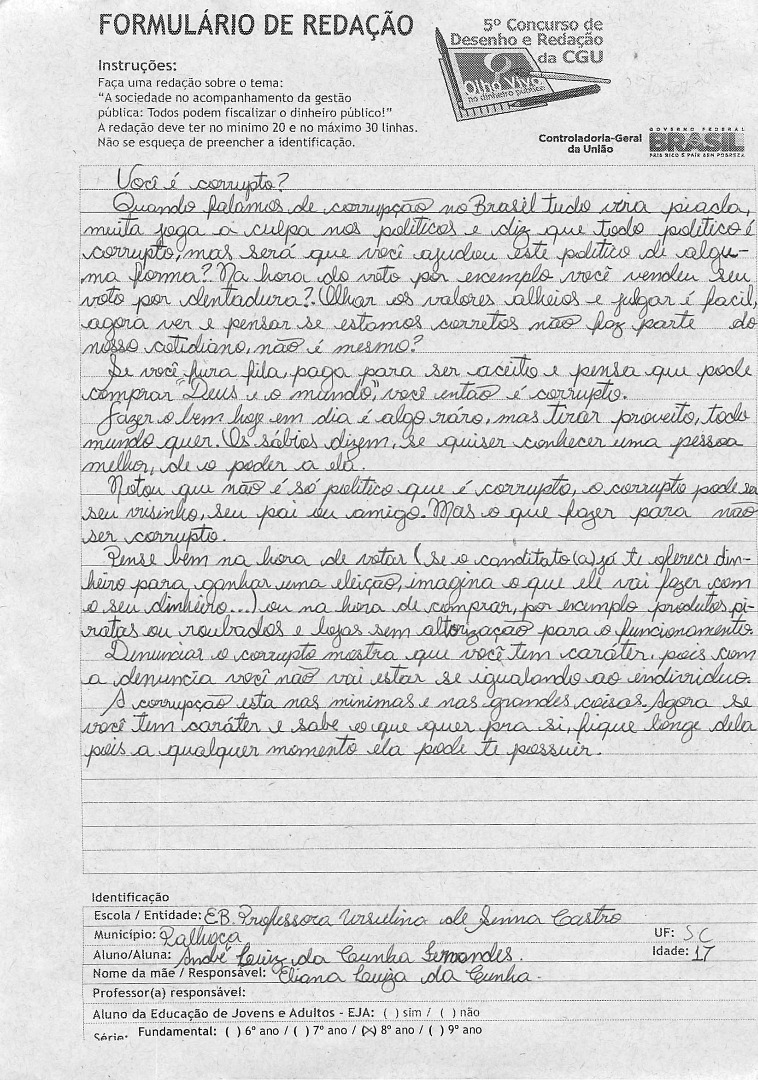 FORMULÁRIO DE REDAÇÃO
5º Concurso de
Desenho e Redação
da CGU
Olho Vivo
no dinheiro público
Instruções:
Faça uma redação sobre o tema:
"A sociedade no acompanhamento da gestão
pública: Todos podem fiscalizar o dinheiro público!"
A redação deve ter no mínimo 20 e no máximo 30 linhas.
Não se esqueça de preencher a identificação.
Controladoria-Geral
da União
GOVERNO FEDERAL
BRASIL
PAÍS RICO É PAÍS SEM POBREZA
Você é corrupto?
Quando falamos de corrupção no Brasil tudo vira piada,
muita joga a culpa nos politicos e diz que todo politico é
corrupto, mas será que você ajudou este politico de algu-
ma forma? Na hora do voto por exemplo você vendeu seu
voto por dentadura? Olhar os valores alheios e julgar é facil,
agora ver e pensar se estamos corretos não faz parte do
nosso cotidiano, não é mesmo?
Se você fura fila, paga para ser aceito e pensa que pode
comprar "Deus e o mundo", você então é corrupto.
Fazer o bem hoje em dia é algo ráro, mas tirar proveito, todo
mundo quer. Os sábios dizem, se quiser conhecer uma pessoa
melhor, de o poder a ela.
Notou que não é só politico que é corrupto, o corrupto pode ser
seu visinho, seu pai ou amigo. Mas o que fazer para não
ser corrupto.
Pense bem na hora de votar (se o canditato(a) já te oferece din-
heiro para ganhar uma eleição, imagina o que ele vai fazer com
o seu dinheiro...) ou na hora de comprar, por exemplo produtos pi-
ratas ou roubados e lojas sem altorização para o funcionamento.
Denunciar o corrupto mostra que você tem caráter, pois com
a denuncia você não vai estar se igualando ao endividuo.
A corrupção esta nas minimas e nas grandes coisas. Agora se
você tem caráter e sabe o que quer pra si, fique longe dela
pois a qualquer momento ela pode te possuir.
Identificação
Escola / Entidade: EB. Professora Ursulina de Senna Castro
Município: Palhoça UF: SC
Aluno/Aluna: André Luiz da Cunha Fernandes. Idade: 17
Nome da mãe / Responsável: Eliana Luiza da Cunha.
Professor(a) responsável:
Aluno da Educação de Jovens e Adultos - EJA: ( ) sim / ( ) não
Série: Fundamental: ( ) 6º ano / ( ) 7º ano / (X) 8º ano / ( ) 9º ano